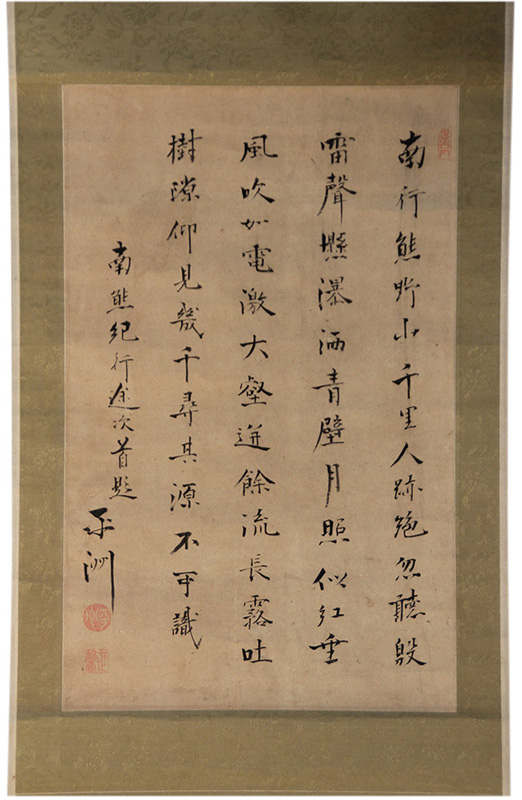 南行熊野山千里人跡絶忽聽殷
雷聲懸瀑洒青壁月照似紅垂
風吹如電激大壑迸餘流長霧吐
樹隙仰見幾千尋其源不可識
南熊紀行途次首題
平洲